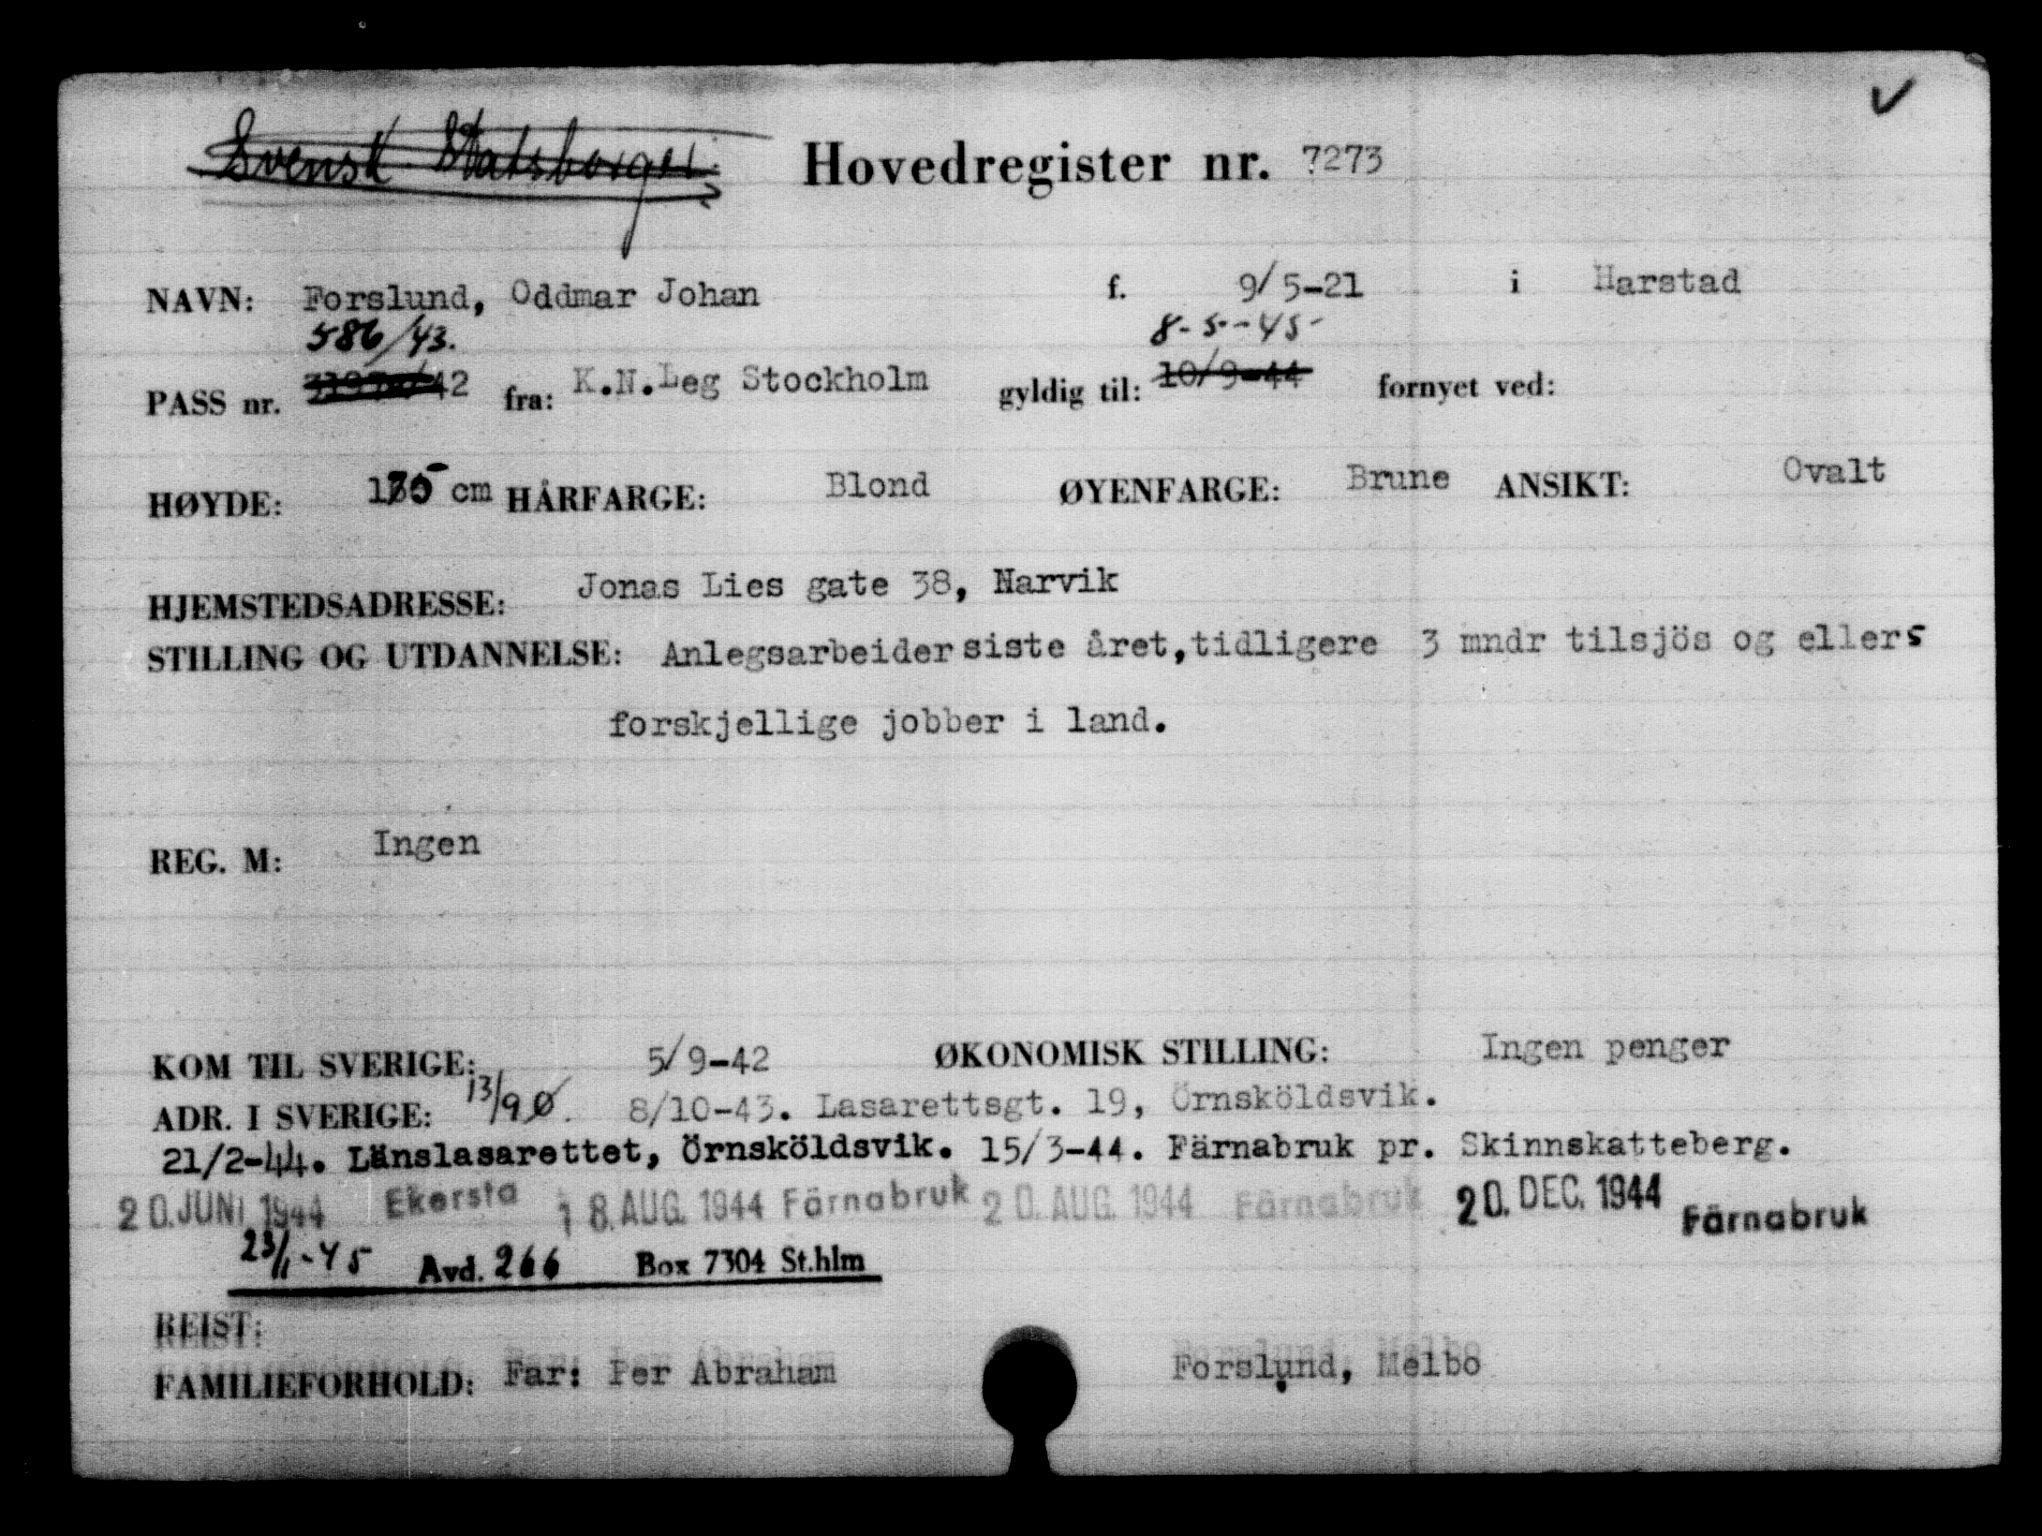 Svensk Statsborger. Hovedregister nr. 7273
NAVN: Forslund, Oddmar Johan f. 9/5-21 i Harstad
586/43. 8-5--45-
PASS nr. 42 fra: K.N.Leg Stockholm gyldig til: 10/9-44 fornyet ved:
HØYDE: 175 cm HÅRFARGE: Blond ØYENFARGE: Brune ANSIKT: Ovalt
HJEMSTEDSADRESSE: Jonas Lies gate 38, Narvik
STILLING OG UTDANNELSE: Anlegsarbeider siste året, tidligere 3 mndr tilsjös og ellers
forskjellige jobber i land.
REG. M: Ingen
KOM TIL SVERIGE: 5/9-42 ØKONOMISK STILLING: Ingen penger
ADR. I SVERIGE: 13/9 Ø. 8/10-43. Lasarettsgt. 19, Örnsköldsvik.
21/2-44. Länslasarettet, Örnsköldsvik. 15/3-44. Färnabruk pr. Skinnskatteberg.
20. JUNI 1944 Ekersta 18. AUG. 1944 Färnabruk 20. AUG. 1944 Färnabruk 20. DEC. 1944 Färnabruk
23/1-45 Avd. 266 Box 7304 St.hlm
REIST:
FAMILIEFORHOLD: Far: Per Abraham Forslund, Melbo